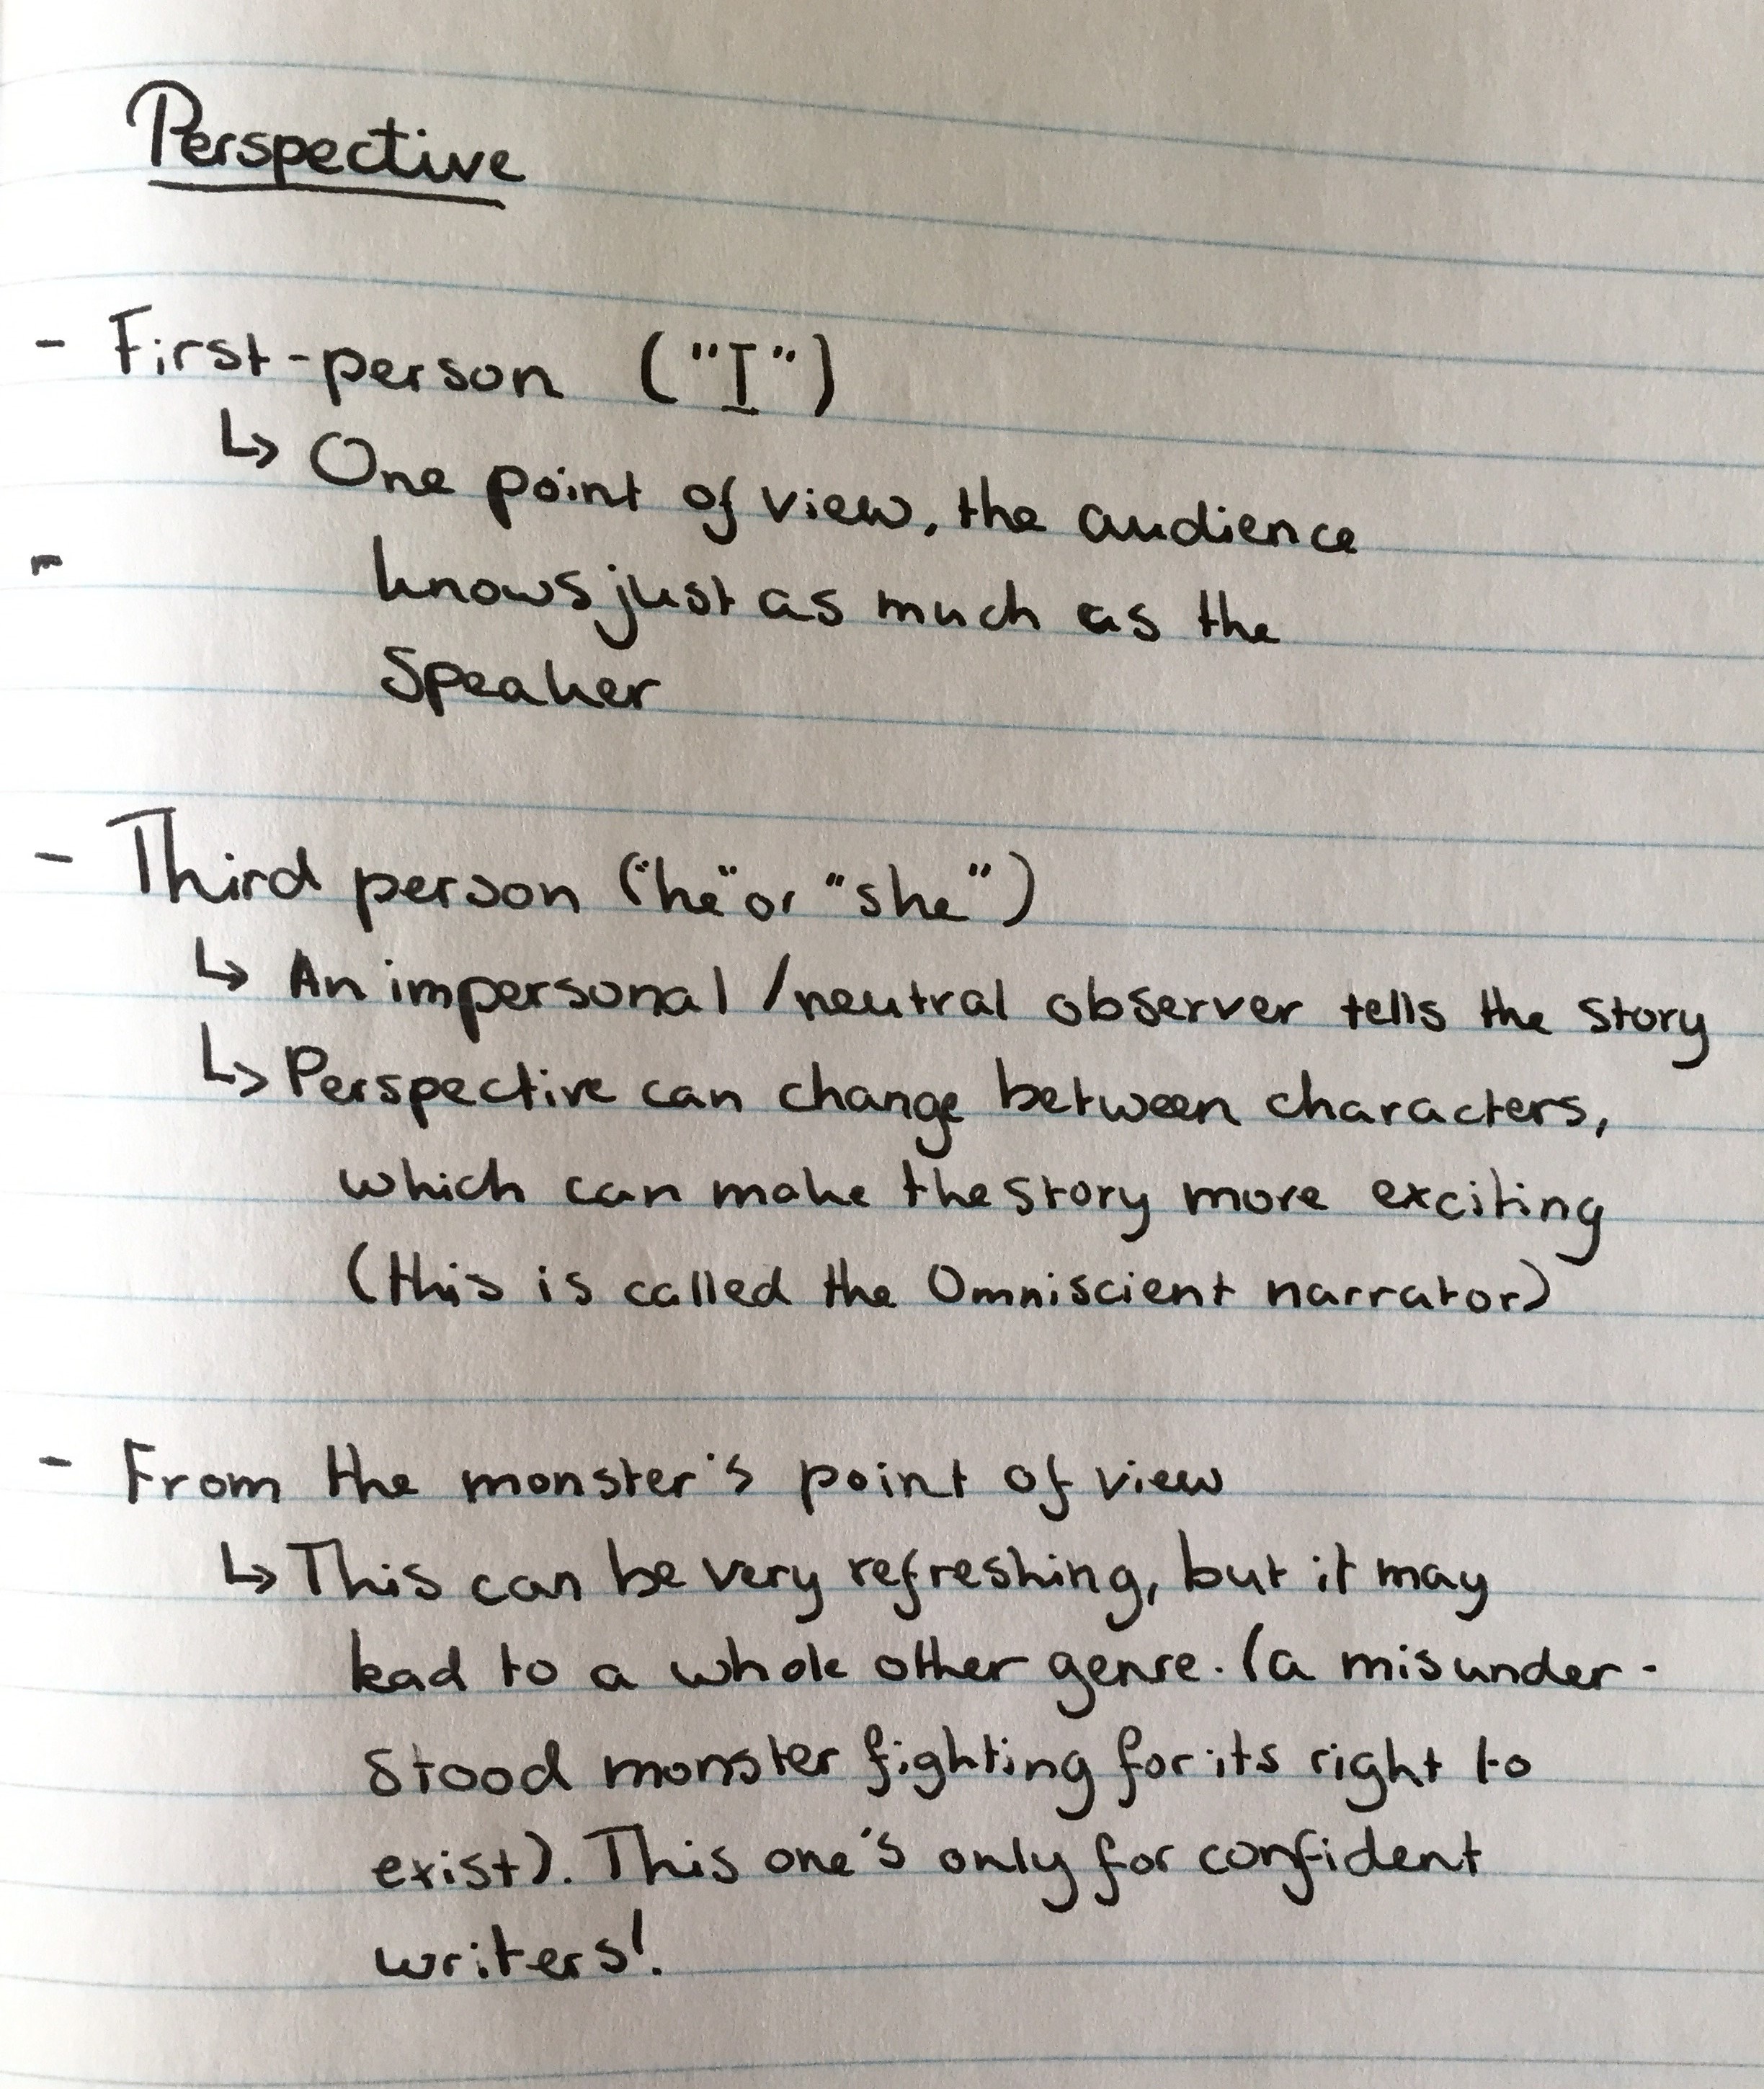 Perspective
- First-person ("I")
↳ One point of view, the audience
- knows just as much as the
speaker
- Third person ("he" or "she")
↳ An impersonal/neutral observer tells the story
↳ Perspective can change between characters,
which can make the story more exciting
(this is called the Omniscient narrator)
- From the monster's point of view
↳ This can be very refreshing, but it may
lead to a whole other genre. (a misunder-
stood monster fighting for its right to
exist). This one's only for confident
writers!